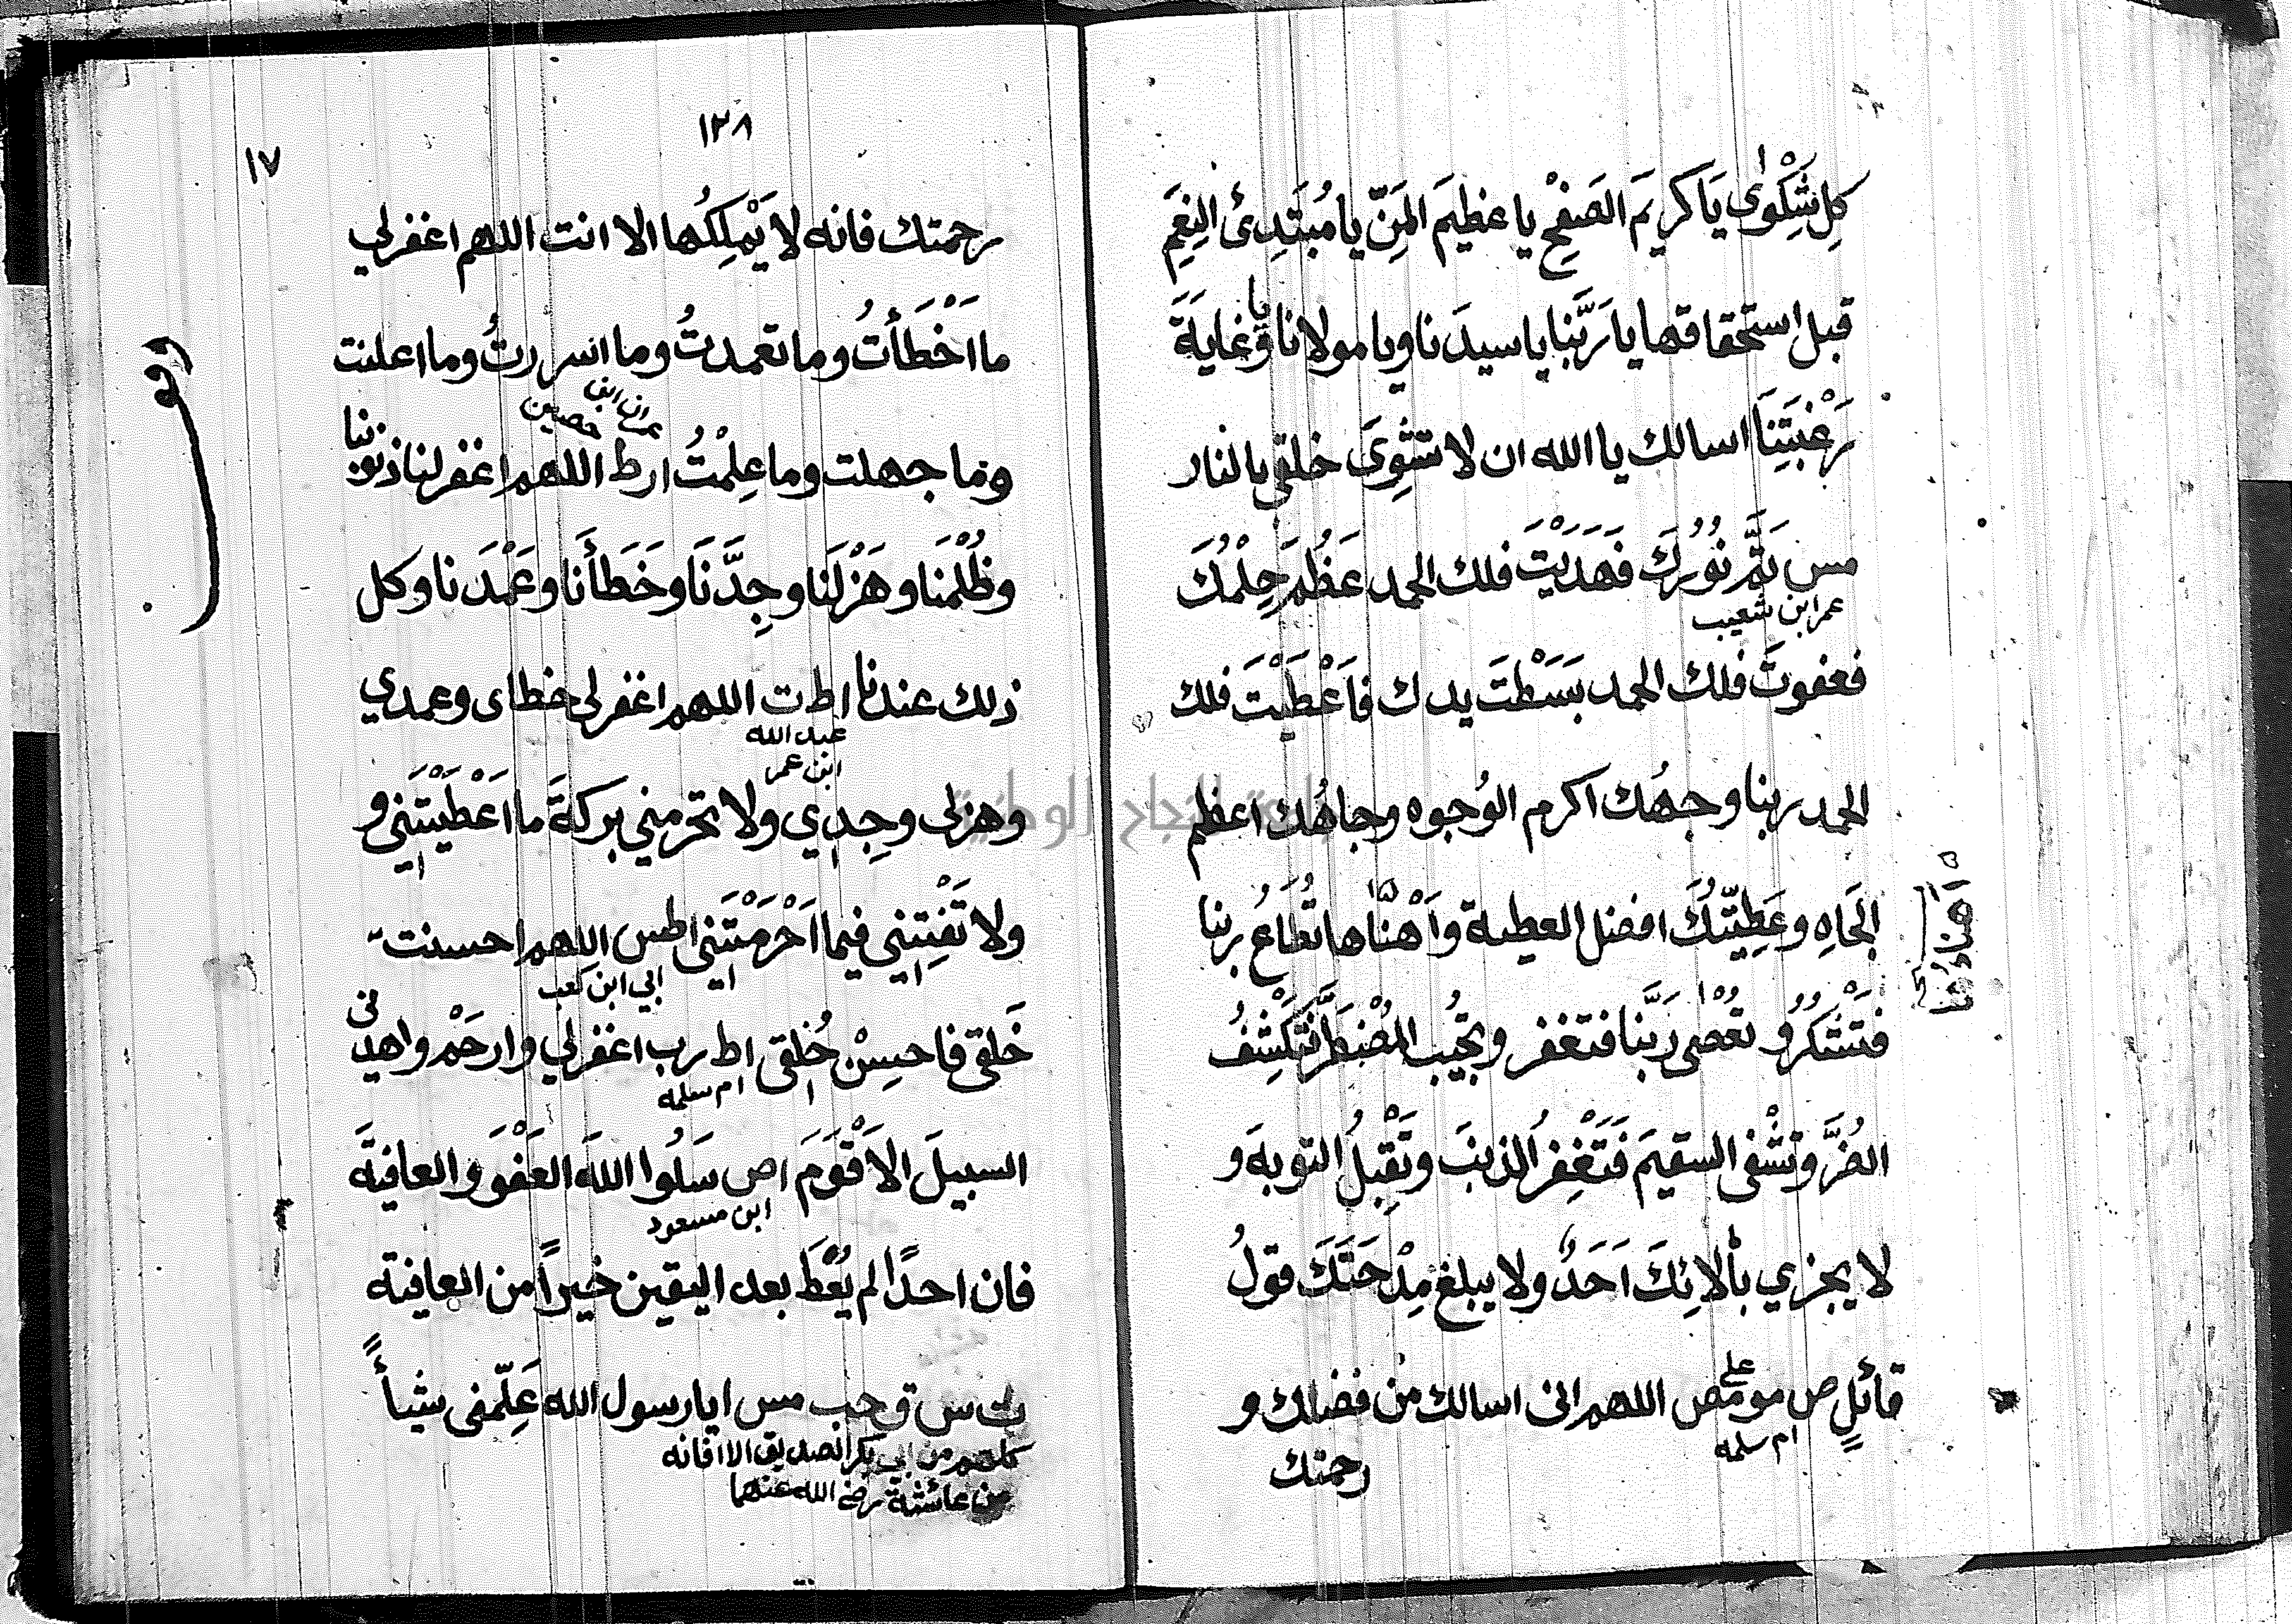 كل شَكْوٰى يَا كريمَ الصَفْحِ يا عظيمَ المَنِّ يا مُبتَدِئَ النِعَمِ
قبل استحقاقها يا رَبَّنا يا سيدَنا ويا مولانا ويا غايةَ
رَغْبَتِنَا اسالك يا الله ان لا تشْوِىَ خلقى بالنار
مس تَمَّ نُوْرُكَ فَهَدَيْتَ فلك الحمد عَظُمَ حِلْمُكَ
عمر ابن شعيب
فعفوتَ فلك الحمد بَسَطْتَ يدك فاَعْطَيْتَ فلك
الحمد ربنا وجهُك اكرم الوُجوه وجاهُك اعظم
الجَاهِ وعَطِيَّتُكَ افضل العطية وَاَهْنَاها تُطَاعُ ربنا
اهناؤها
فَتَشْكُرُ و تُعْصى رَبَّنا فتغفر وتجُيب المُضْطَرَّ فتَكْشِفُ
الضُرَّ وتَشْفى السقيمَ فَتَغْفِرُ الذنبَ وتَقْبِلُ التوبة و
لا يجزي بأٰلائِكَ اَحَدٌ ولا يبلغ مِدْحَتَكَ قولُ
قائلٍ ص مو مص اللهم انى اسالك من فضلك و
على
ام سلمه
رحمتك
١٣٨
١٧
رحمتك فانه لا يَمْلِكُها الا انت اللهم اغفرلي
ما اَخْطَأتُ وما تعمدتُ وما اسررتُ وما اعلنت
وما جهلت وما عِلِمْتُ ا ر ط اللهم اغفرلنا ذنوبنا
عمران ابن حصين
وظُلْمَنا وهَزْلَنا وجِدَّنَا وخَطَأَنا وعَمْدَنا وكل
ذلك عندنا ا ط ت اللهم اغفرلى خطاى وعمدي
عبد الله
ابن عمر
وهزلى وجِدي ولا تحرمني بركةَ ما اَعْطَيْتَني و
ولا تَفْتِني فيما اَحْرَمْتَني ا طس اللهم احسنت
ابي ابن كعب
خَلقى فاحسِنْ خُلقى ا ط رب اغفرلي وارحَمْ واهدِنى
ام سلمه
السبيلَ الاَقْوَمَ ا ص سَلُوا اللهَ العَفْوَ والعافيةَ
ابن مسعود
فان احدًا لم يُعْطَ بعد اليقين خيراً من العافية
ت س ق حب مس ا يا رسول الله عَلِّمْنى شيأً
كلهم من ابى بكر الصديق الا ا فانه
من عائشة رضى الله عنهما